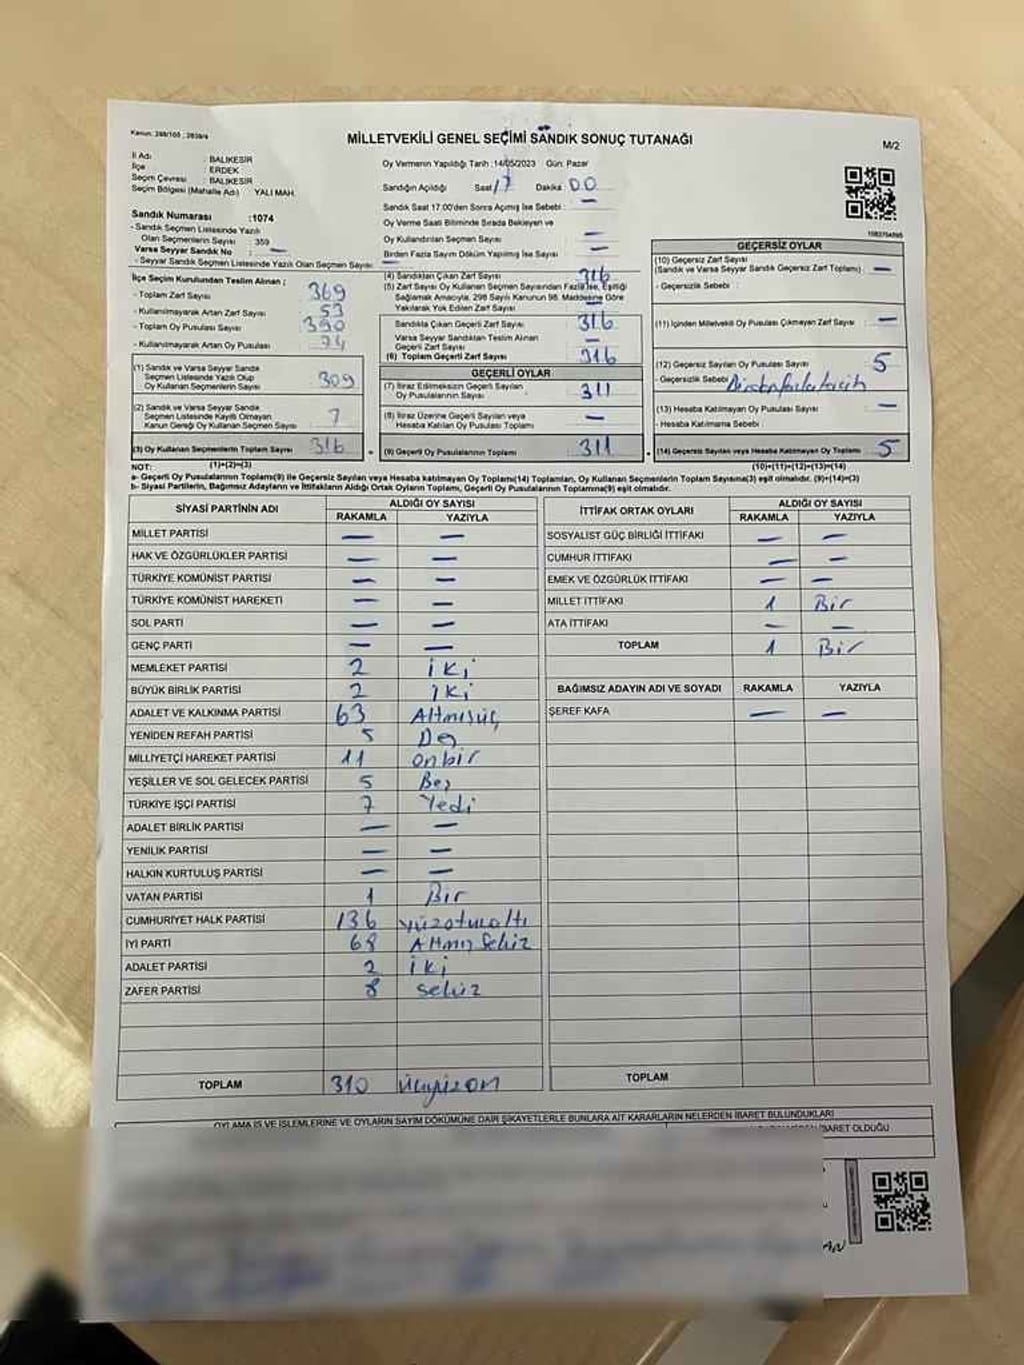 Kanun: 298/105 ; 2839/4
MİLLETVEKİLİ GENEL SEÇİMİ SANDIK SONUÇ TUTANAĞI
M/2
İl Adı : BALIKESİR
İlçe : ERDEK
Seçim Çevresi : BALIKESİR
Seçim Bölgesi (Mahalle Adı) YALI MAH.
Sandık Numarası :1074
- Sandık Seçmen Listesinde Yazılı
Olan Seçmenlerin Sayısı : 359
Varsa Seyyar Sandık No : —
- Seyyar Sandık Seçmen Listesinde Yazılı Olan Seçmen Sayısı: —
Oy Vermenin Yapıldığı Tarih :14/05/2023 Gün: Pazar
Sandığın Açıldığı Saat 17 Dakika 00
Sandık Saat 17:00'den Sonra Açılmış İse Sebebi : —
Oy Verme Saati Bitiminde Sırada Bekleyen ve
Oy Kullandırılan Seçmen Sayısı —
Birden Fazla Sayım Döküm Yapılmış İse Sayısı —
İlçe Seçim Kurulundan Teslim Alınan ;
- Toplam Zarf Sayısı 369
- Kullanılmayarak Artan Zarf Sayısı 53
- Toplam Oy Pusulası Sayısı 390
- Kullanılmayarak Artan Oy Pusulası 74
(1) Sandık ve Varsa Seyyar Sandık
Seçmen Listesinde Yazılı Olup
Oy Kullanan Seçmenlerin Sayısı 309
(2) Sandık ve Varsa Seyyar Sandık
Seçmen Listesinde Kayıtlı Olmayan
Kanun Gereği Oy Kullanan Seçmen Sayısı 7
(3) Oy Kullanan Seçmenlerin Toplam Sayısı 316
(1)+(2)=(3)
(4) Sandıktan Çıkan Zarf Sayısı 316
(5) Zarf Sayısı Oy Kullanan Seçmen Sayısından Fazla İse, Eşitliği
Sağlamak Amacıyla, 298 Sayılı Kanunun 98. Maddesine Göre
Yakılarak Yok Edilen Zarf Sayısı —
Sandıkta Çıkan Geçerli Zarf Sayısı 316
Varsa Seyyar Sandıktan Teslim Alınan
Geçerli Zarf Sayısı —
(6) Toplam Geçerli Zarf Sayısı 316
GEÇERLİ OYLAR
(7) İtiraz Edilmeksizin Geçerli Sayılan
Oy Pusulalarının Sayısı 311
(8) İtiraz Üzerine Geçerli Sayılan veya
Hesaba Katılan Oy Pusulası Toplamı —
(9) Geçerli Oy Pusulalarının Toplamı 311
GEÇERSİZ OYLAR
(10) Geçersiz Zarf Sayısı
(Sandık ve Varsa Seyyar Sandık Geçersiz Zarf Toplamı) —
- Geçersizlik Sebebi :
(11) İçinden Milletvekili Oy Pusulası Çıkmayan Zarf Sayısı —
(12) Geçersiz Sayılan Oy Pusulası Sayısı 5
- Geçersizlik Sebebi Birden fazla tercih
(13) Hesaba Katılmayan Oy Pusulası Sayısı —
- Hesaba Katılmama Sebebi
(14) Geçersiz Sayılan veya Hesaba Katılmayan Oy Toplamı 5
(10)+(11)+(12)+(13)=(14)
NOT:
a- Geçerli Oy Pusulalarının Toplamı(9) ile Geçersiz Sayılan veya Hesaba katılmayan Oy Toplamı(14) Toplamları, Oy Kullanan Seçmenlerin Toplam Sayısına(3) eşit olmalıdır. (9)+(14)=(3)
b- Siyasi Partilerin, Bağımsız Adayların ve İttifakların Aldığı Ortak Oyların Toplamı, Geçerli Oy Pusulalarının Toplamına(9) eşit olmalıdır.
SİYASİ PARTİNİN ADI ALDIĞI OY SAYISI
RAKAMLA YAZIYLA
MİLLET PARTİSİ — —
HAK VE ÖZGÜRLÜKLER PARTİSİ — —
TÜRKİYE KOMÜNİST PARTİSİ — —
TÜRKİYE KOMÜNİST HAREKETİ — —
SOL PARTİ — —
GENÇ PARTİ — —
MEMLEKET PARTİSİ 2 iki
BÜYÜK BİRLİK PARTİSİ 2 iki
ADALET VE KALKINMA PARTİSİ 63 Altmışüç
YENİDEN REFAH PARTİSİ 5
MİLLİYETÇİ HAREKET PARTİSİ 11 onbir
YEŞİLLER VE SOL GELECEK PARTİSİ 5 Beş
TÜRKİYE İŞÇİ PARTİSİ 7 Yedi
ADALET BİRLİK PARTİSİ — —
YENİLİK PARTİSİ — —
HALKIN KURTULUŞ PARTİSİ — —
VATAN PARTİSİ 1 Bir
CUMHURİYET HALK PARTİSİ 136 yüzotuzaltı
İYİ PARTİ 68 Altmış Sekiz
ADALET PARTİSİ 2 iki
ZAFER PARTİSİ 8 sekiz
TOPLAM 310 üçyüzon
İTTİFAK ORTAK OYLARI ALDIĞI OY SAYISI
RAKAMLA YAZIYLA
SOSYALİST GÜÇ BİRLİĞİ İTTİFAKI — —
CUMHUR İTTİFAKI — —
EMEK VE ÖZGÜRLÜK İTTİFAKI — —
MİLLET İTTİFAKI 1 Bir
ATA İTTİFAKI — —
TOPLAM 1 Bir
BAĞIMSIZ ADAYIN ADI VE SOYADI RAKAMLA YAZIYLA
ŞEREF KAFA — —
TOPLAM
OYLAMA İŞ VE İŞLEMLERİNE VE OYLARIN SAYIM DÖKÜMÜNE DAİR ŞİKAYETLERLE BUNLARA AİT KARARLARIN NELERDEN İBARET BULUNDUKLARI
İBARET OLDUĞU